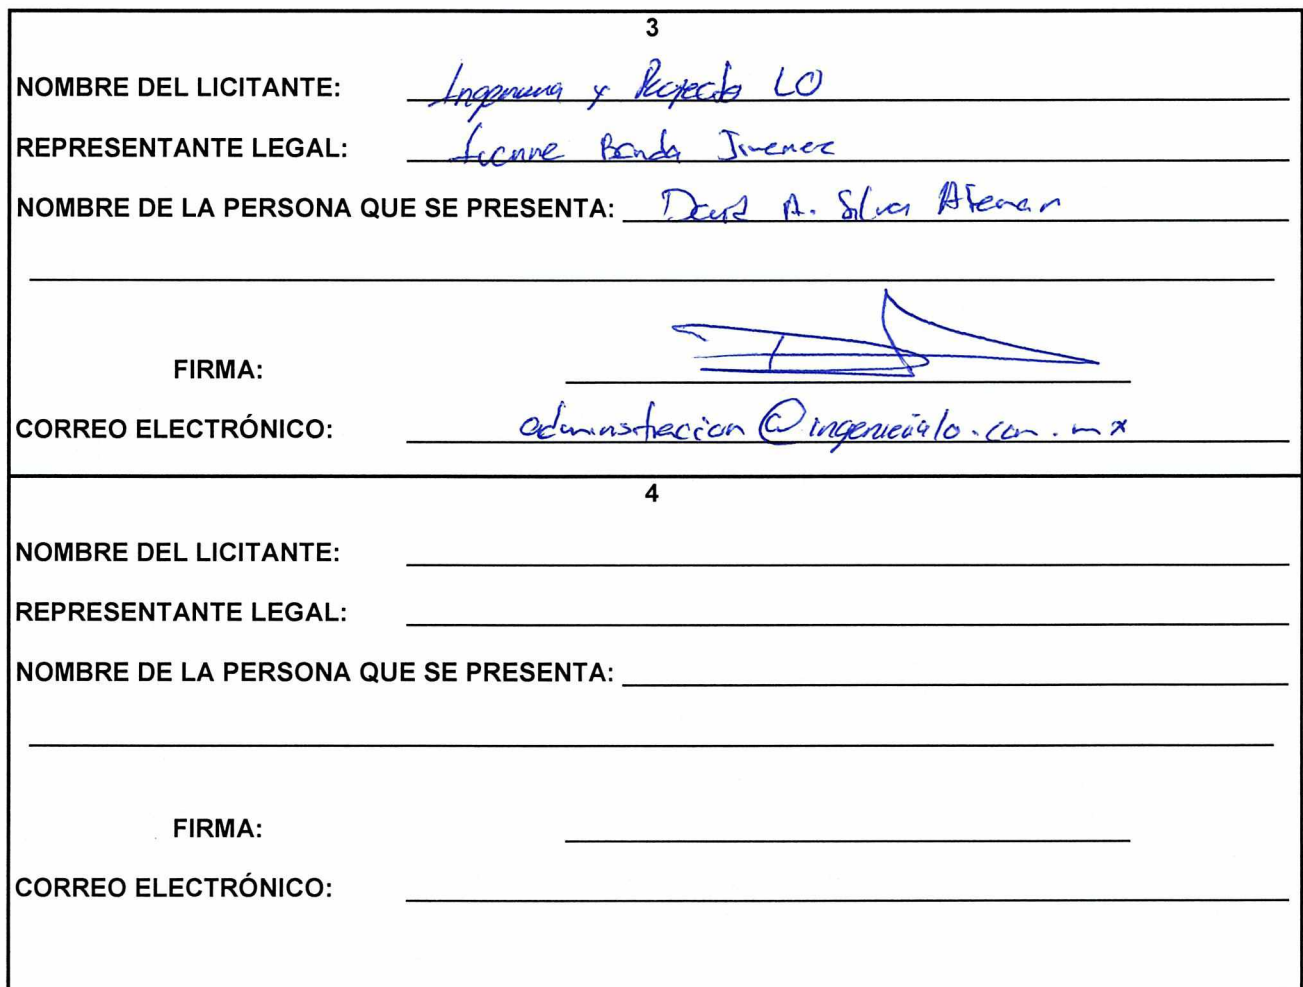 3
NOMBRE DEL LICITANTE: Ingenieria y Proyectos LO
REPRESENTANTE LEGAL: Ivonne Banda Jimenez
NOMBRE DE LA PERSONA QUE SE PRESENTA: David A. Silva Aleman
FIRMA:
CORREO ELECTRÓNICO: administracion@ingenierialo.com.mx
4
NOMBRE DEL LICITANTE:
REPRESENTANTE LEGAL:
NOMBRE DE LA PERSONA QUE SE PRESENTA:
FIRMA:
CORREO ELECTRÓNICO: